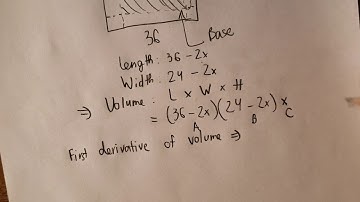 36
Base
Length: 36 - 2x
Width: 24 - 2x
⇒ Volume: L x W x H
= (36 - 2x)(24 - 2x) x
A B C
First derivative of volume ⇒